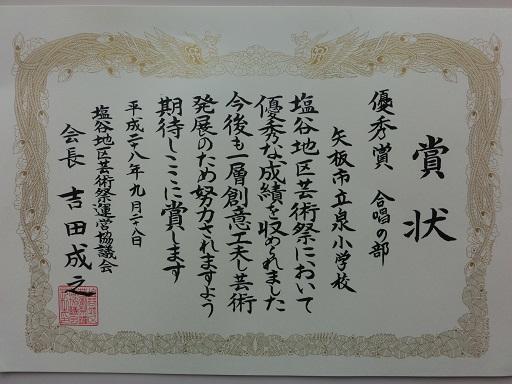 賞状
優秀賞　合唱の部
矢板市立泉小学校
塩谷地区芸術祭において
優秀な成績を収められました
今後も一層創意工夫し芸術
発展のため努力されますよう
期待しここに賞します
平成二十八年九月二十八日
塩谷地区芸術祭運営協議会
会長　吉田成之